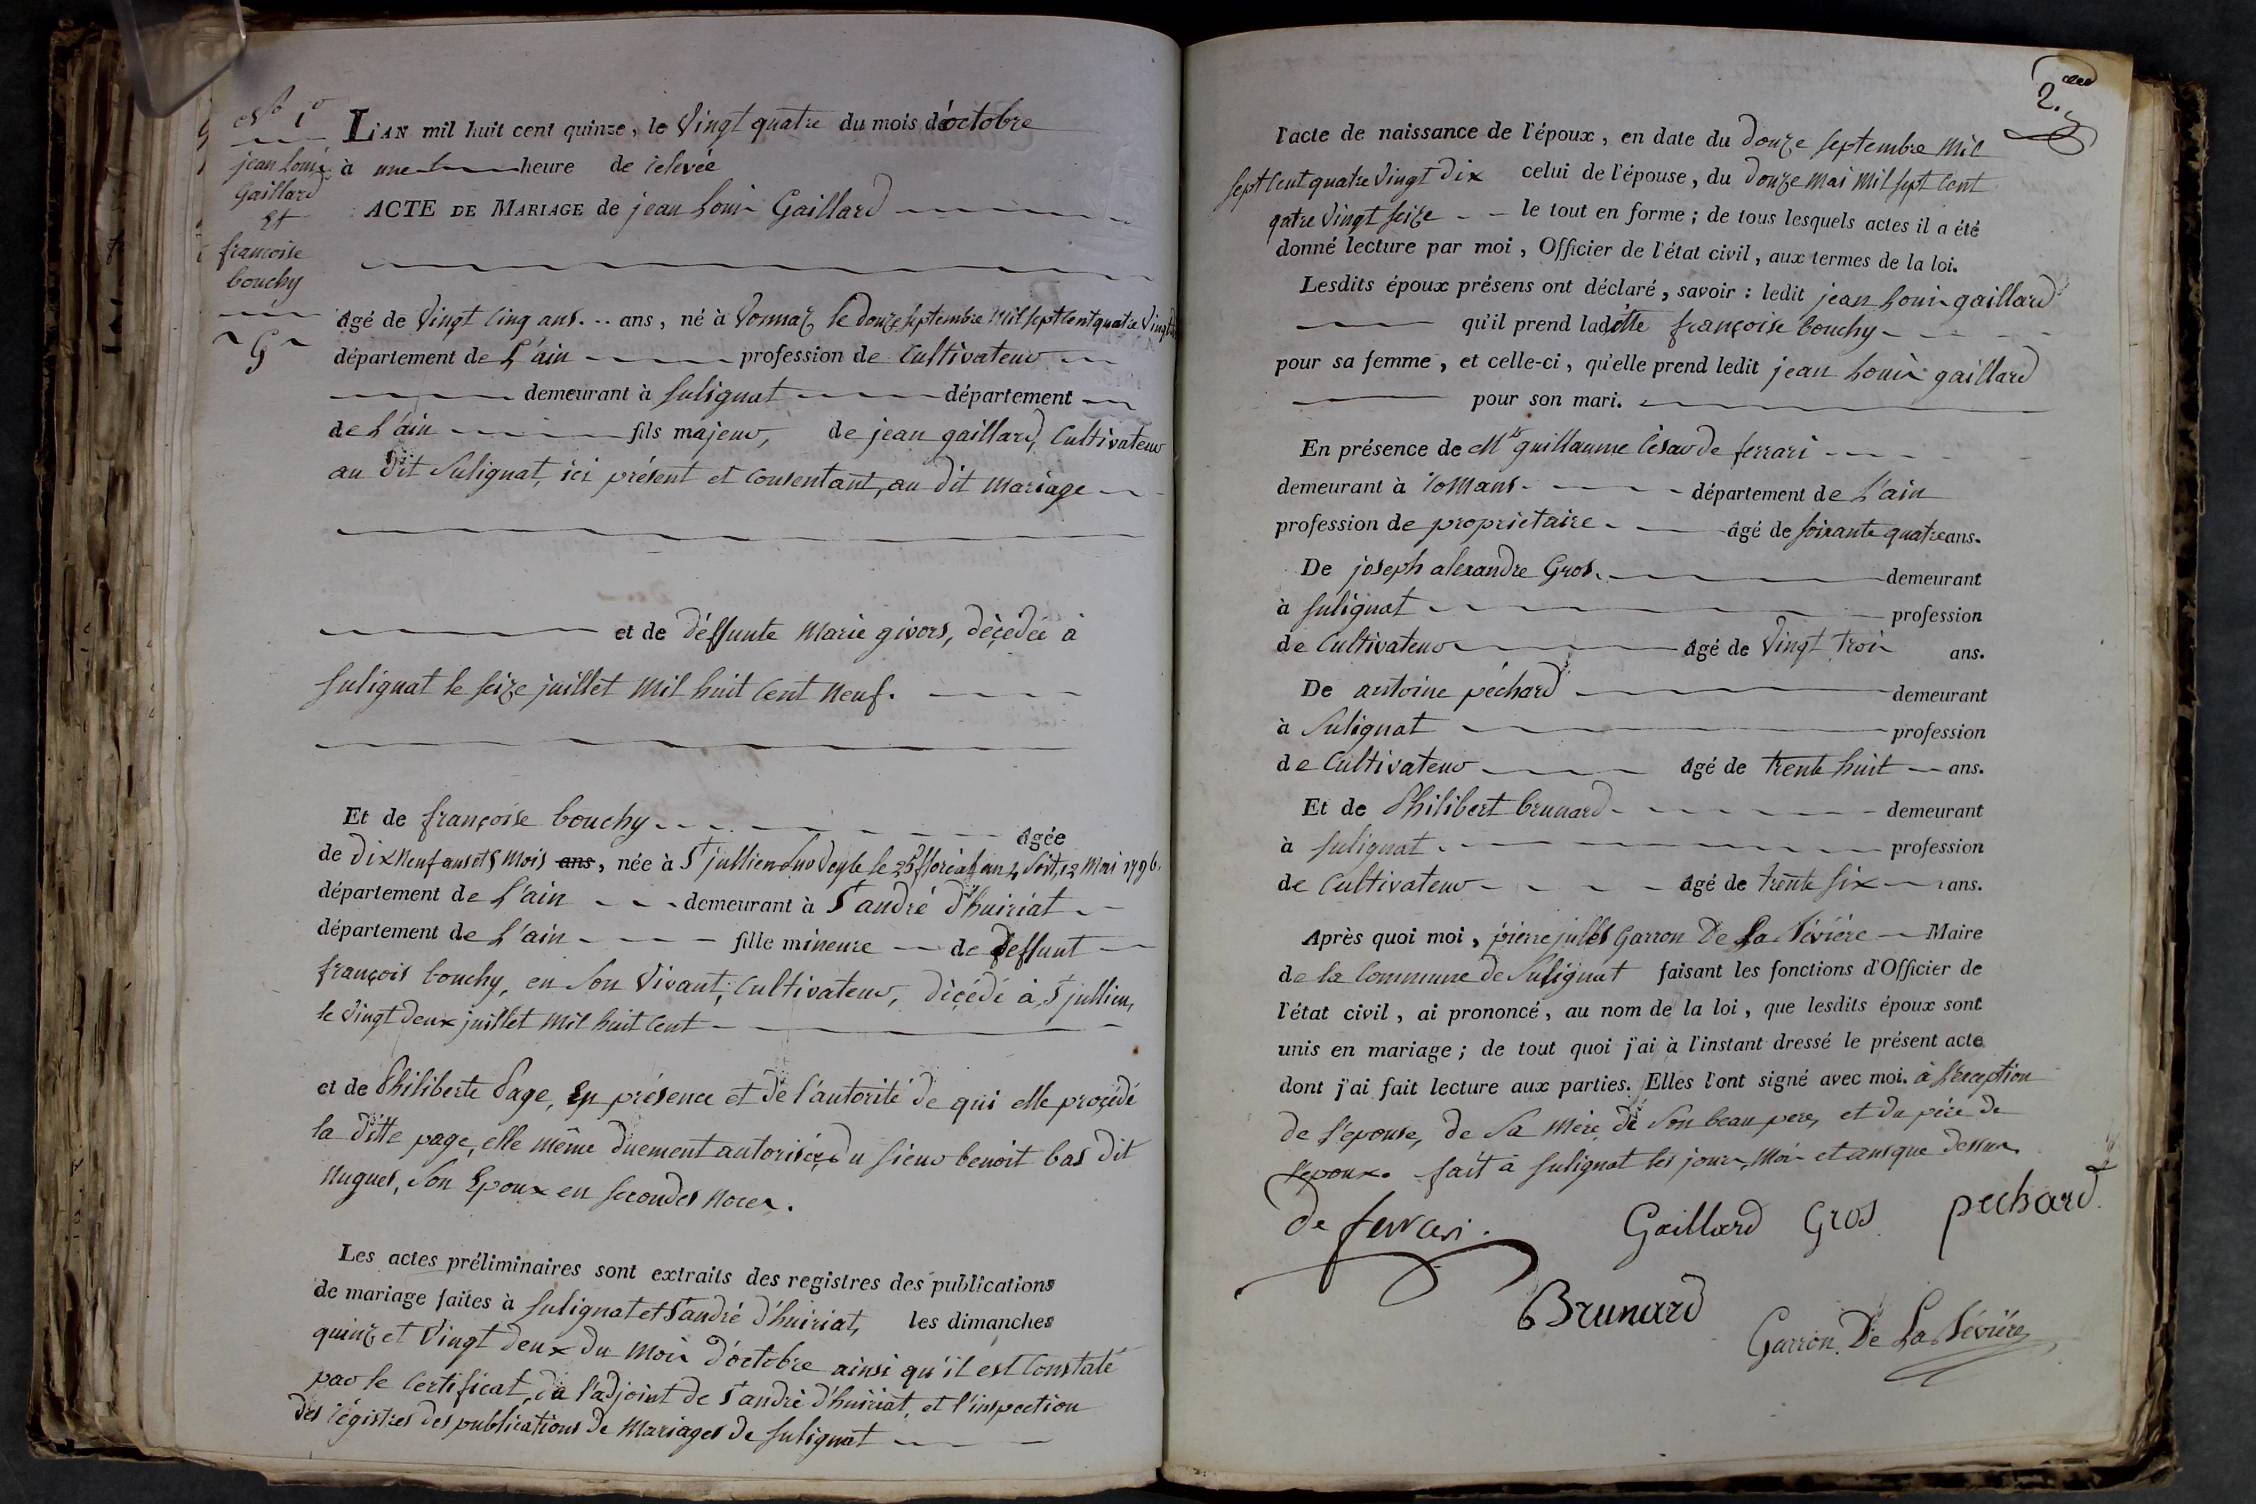 N° 1er
jean Louis
Gaillard
Et
francoise
bouchy
G
L'AN mil huit cent quinze, le Vingt quatre du mois d'octobre
à une heure de relevée
ACTE DE MARIAGE de jean Louis Gaillard
âgé de Vingt Cinq ans... ans, né à Vonnaz le douze septembre Mil sept Cent quatre Vingt dix
département de L'ain profession de Cultivateur
demeurant à Sulignat département
de L'ain fils majeur, de jean gaillard, Cultivateur
au dit Sulignat, ici présent et Consentant, au dit mariage
et de déffunte Marie givors, décédée à
Sulignat le seize juillet Mil huit Cent Neuf.
Et de françoise bouchy âgée
de dix Neuf ans et 5 Mois ans, née à St jullien sur Veyle le 23 floréal an 4 Soit, 12 Mai 1796.
département de L'ain demeurant à St andré d'huiriat
département de L'ain fille mineure de deffunt
françois bouchy, en Son Vivant, Cultivateur, décédé à St jullien,
le Vingt deux juillet Mil huit Cent
et de Philiberte Page, En présence et de l'autorité de qui elle procède
la ditte page, elle même duement autorisée, du sieur benoit bas dit
Nugues, Son Epoux en secondes Noces.
Les actes préliminaires sont extraits des registres des publications
de mariage faites à Sulignat et St andré d'huiriat, les dimanches
quinz et Vingt deux du Mois d'octobre ainsi qu'il est Constaté
par le Certificat, de l'adjoint de St andré d'huiriat, et l'inspection
des régistres des publications de Mariages de Sulignat
2.
l'acte de naissance de l'époux, en date du douze septembre Mil
sept Cent quatre Vingt Dix celui de l'épouse, du douze Mai Mil sept Cent
qatre Vingt seize le tout en forme; de tous lesquels actes il a été
donné lecture par moi, Officier de l'état civil, aux termes de la loi.
Lesdits époux présens ont déclaré, savoir: ledit jean Louis gaillard
qu'il prend ladite françoise bouchy
pour sa femme, et celle-ci, qu'elle prend ledit jean Louis gaillard
pour son mari.
En présence de Mr guillaume César de ferrari
demeurant à roMans département de L'ain
profession de proprietaire âgé de soixante quatre ans.
De joseph alexandre Gros. demeurant
à Sulignat profession
de Cultivateur âgé de Vingt trois ans.
De antoine péchard demeurant
à Sulignat profession
de Cultivateur âgé de trente huit ans.
Et de Philibert brunard demeurant
à Sulignat profession
de Cultivateur âgé de trente six ans.
Après quoi moi, pierre jules Garron De La Bévière Maire
de la Commune de Sulignat faisant les fonctions d'Officier de
l'état civil, ai prononcé, au nom de la loi, que lesdits époux sont
unis en mariage; de tout quoi j'ai à l'instant dressé le présent acte
dont j'ai fait lecture aux parties. Elles l'ont signé avec moi. à l'exception
de l'épouse, de Sa Mère, de Son beau pere, et du père de
l'époux. fait à Sulignat les jour, Mois et an que dessus
de ferrari.
Gaillard Gros pechard
Brunard
Garron De La Bévière